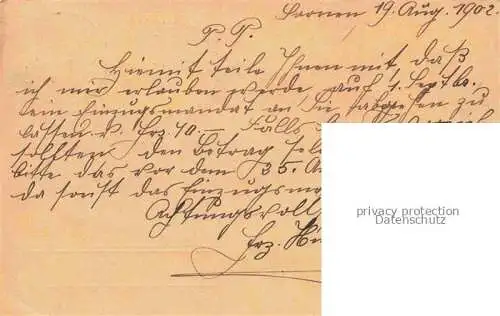 Sarnen 19. Aug. 1902.
P. P.
Hiemit teile Ihnen mit daß
ich mir erlauben werde auf 1. Septb.
ein Einzugsmandat an Sie abgehen zu
lassen v. frz. 40.— Falls
sollten den Betrag
bitte das vor dem 25. A
da sonst das Einzugsma
Achtungsvoll
frz.
privacy protection
Datenschutz